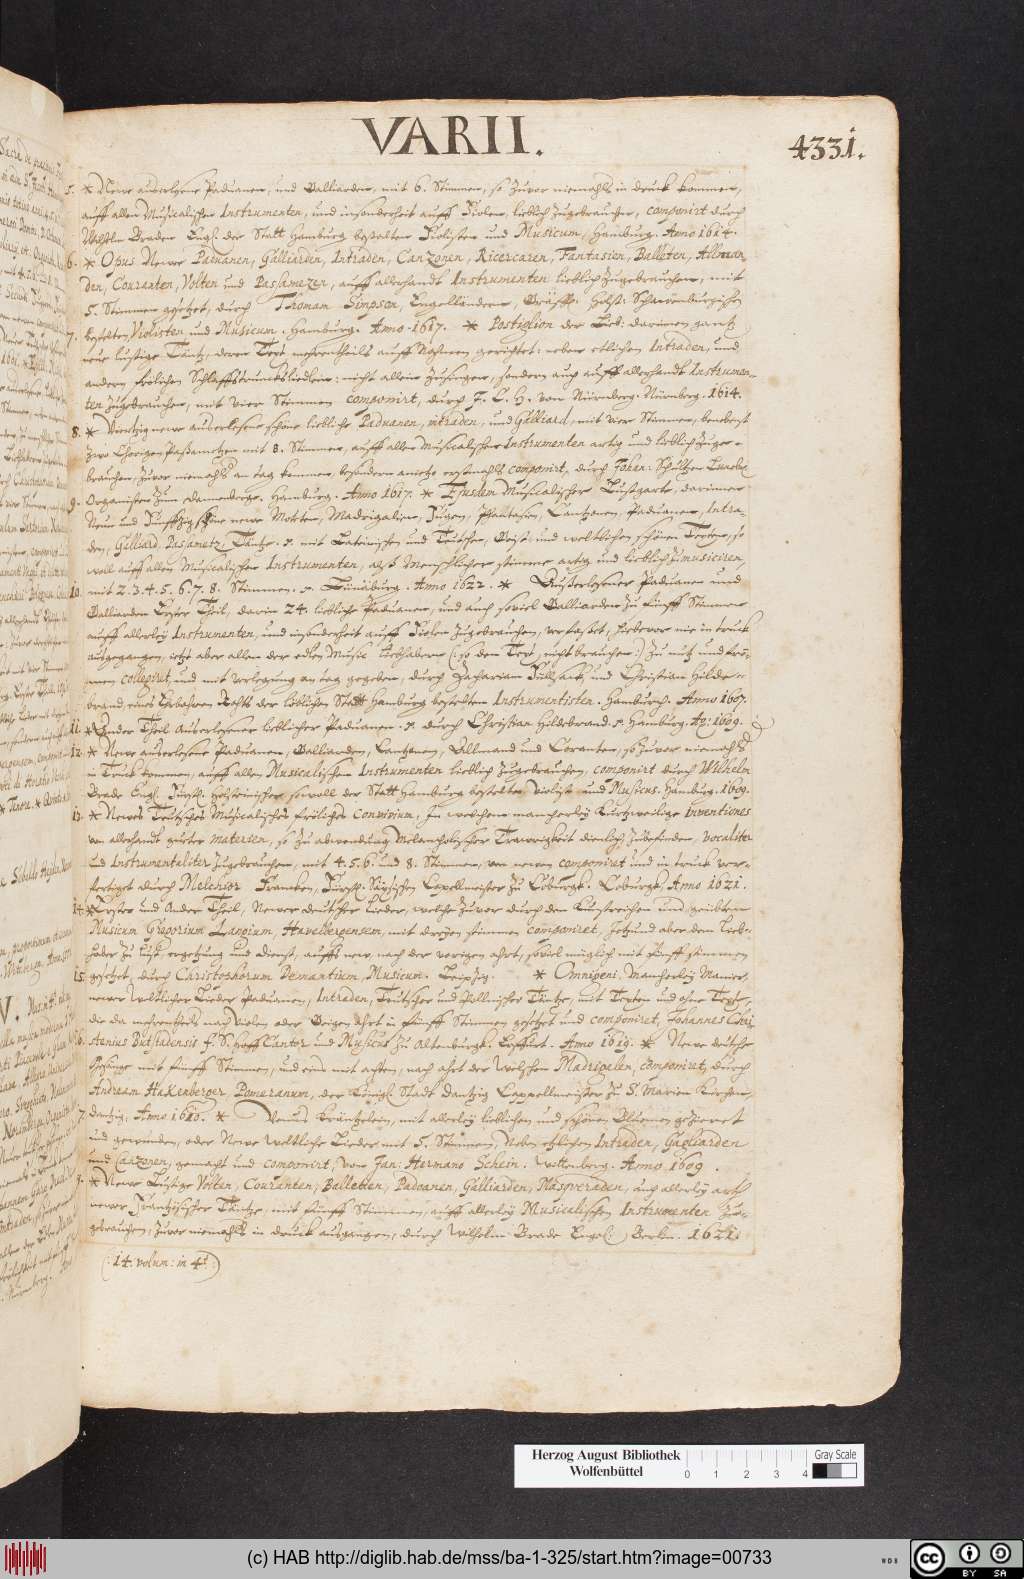 VARII.
4331.
5. * Newe auserlesene Paduanen, und Galliarden, mit 6. Stimmen, so zuvor niemahls in druck kommen,
auff allen Musicalischen Instrumenten, und insonderheit auff Fiolen, lieblich zugebrauchen, componirt durch
Wilhelm Braden Engl. der Statt Hamburg bestalten Fiolisten und Musicum, Hamburg. Anno 1614.
6. * Opus Newer Paduanen, Galliarden, Intraden, Canzonen, Ricercaren, Fantasien, Balletten, Allman
den, Couranten, Volten und Passamezen, auff allerhandt Instrumenten lieblich zugebrauchen, mit
5. Stimmen gesetzet, durch Thomam Simpson, Engelländern, Gräffl. Holst. Schawenburgischen
bestelten Violisten und Musicum. Hamburg. Anno 1617.
7. * Postiglion der Lieb: darinnen gantz
neue lustige Täntz, deren Text mehrentheils auff Nahmen gerichtet: neben etlichen Intraden, und
andern frölichen Schlafftruncksliedlein: nicht allein zusingen, sondern auch auff allerhandt Instrumen-
ten zugebrauchen, mit vier Stimmen componirt, durch J. C. H. von Nürnberg. Nürnberg. 1614.
8. * Viertzig newe auserlesene schöne liebliche Paduanen, intraden, und Galliard, mit vier Stimmen, benebenst
zwo Chorigen Passametzen mit 8. Stimmen, auff allen Musicalischen Instrumenten artig und lieblich zuge-
brauchen, zuvor niemahls an tag kommen, besondern anietzo erstmahls componirt, durch Johan: Schultzen
Organisten zum Dannenberge. Hamburg. Anno 1617.
9. * Ejusdem Musicalischer Lustgarte, darinnen
Neun und Funffzig schöne newe Moteten, Madrigalien, Fugen, Phantasien, Cantzonen, Paduanen, Intra-
den, Galliard, Passametz, Täntze. mit Lateinischen und Teutschen, Geist- und weltlichen schönen Texten, so
woll auff allen Musicalischen Instrumenten, alss Menschlicher stimme artig und lieblich zu musiciren,
mit 2. 3. 4. 5. 6. 7. 8. Stimmen. Lünäburg. Anno 1622.
10. * Ausserlesener Paduanen und
Galliarden Erster Theil, darin 24. liebliche Paduanen, und auch soviel Galliarden zu fünff Stimmen
auff allerley Instrumenten, und insonderheit auff Fiolen zugebrauchen, verfasset, hiebevor nie in truck
ausgegangen, ietzt aber allen der edlen Music Liebhabern (: so den Text nicht brauchen :) zu nutz und from-
men collegirt, und mit verlegung an tag gegeben, durch Zachariam Füllsack, und Christian Hilde-
brand, eines Erbahren Rahts der löblichen Statt Hamburg bestelten Instrumentisten. Hamburch. Anno 1607.
11. * Ander Theil Auserlesener lieblicher Paduanen. durch Christian Hildebrand. Hamburg. Aº: 1609.
12. * Newe auserlesene Paduanen, Galliarden, Cantzonen, Allmand und Coranten, so zuvor niemahls
in Truck kommen, auff allen Musicalischen Instrumenten lieblich zugebrauchen, componirt durch Wilhelm
Brade Engl. Fürstl. Holsteinischer sowoll der Statt Hamburg bestelter Violist und Musicus. Hamburg. 1609.
13. * Newes Teutsches Musicalisches fröliches Convivium, In welchem mancherley Kurtzweilige inventiones
von allerhandt guten materien, so zu abwendung Melancholischer Trawrigkeit dienlich zubefinden, vocaliter
und Instrumentaliter zugebrauchen, mit 4. 5. 6. und 8. Stimmen, von newen componiret und in truck ver-
fertiget durch Melchior Francken, Fürstl. Sächsischen Capellmeister zu Coburgk. Coburgk, Anno 1621.
14. * Erster und Ander Theil, Newer deutscher Lieder, welche zuvor durch den Kunstreichen und geübten
Musicum Gregorium Langium, Havelbergensem, mit dreyen stimmen componiret, Jetzund aber den Lieb-
haber zu lust, ergetzung und dienst, auffs new, nach der vorigen ahrt, soviel müglich mit fünff stimmen
gesetzet, durch Christophorum Demantium, Musicum. Leipzig.
15. * Omnigeni, Mancherley Manier,
newer Weltlicher Lieder Paduanen, Intraden, Teutscher und Pollnischer Täntze, mit Texten und ohne Texte,
die da mehrentheils nach Violen oder Geigen ahrt in fünff Stimmen gesetzet und componiret, Johannes Chri
stenius Butstadensis f. S. Hoff Cantor und Musicus zu Altenburgk. Erffurt. Anno 1619.
16. * Newe deutsche
Gesänge mit fünff Stimmen, und eins mit achten, nach ahrt der Welschen Madrigalen, componiret, durch
Andream Hakenberger, Pomeranum, der Königl. Stadt Dantzig Cappellmeister zu S. Marien Kirchen,
dantzig, Anno 1610.
17. * Venus Kräntzlein, mit allerley lieblichen und schönen Blumen gezieret
und gewunden, oder Newe Weltliche Lieder mit 5. Stimmen, Neben etzlichen Intraden, Gagliarden
und Canzonen, gemacht und componirt, von Jan: Hermano Schein. Wittenberg. Anno 1609.
* Newe Lustige Volten, Couranten, Balletten, Padoanen, Galliarden, Masqueraden, auch allerley arth
newer Frantzösischer Täntze, mit fünff Stimmen, auff allerley Musicalischen Instrumenten zu-
gebrauchen, zuvor niemahls in druck ausgangen, durch Wilhelm Brade Engel: Berlin. 1621.
(: 14. volum: in 4º :)
Herzog August Bibliothek
Wolfenbüttel
0 1 2 3 4
Gray Scale
(c) HAB http://diglib.hab.de/mss/ba-1-325/start.htm?image=00733
WDB
cc BY SA